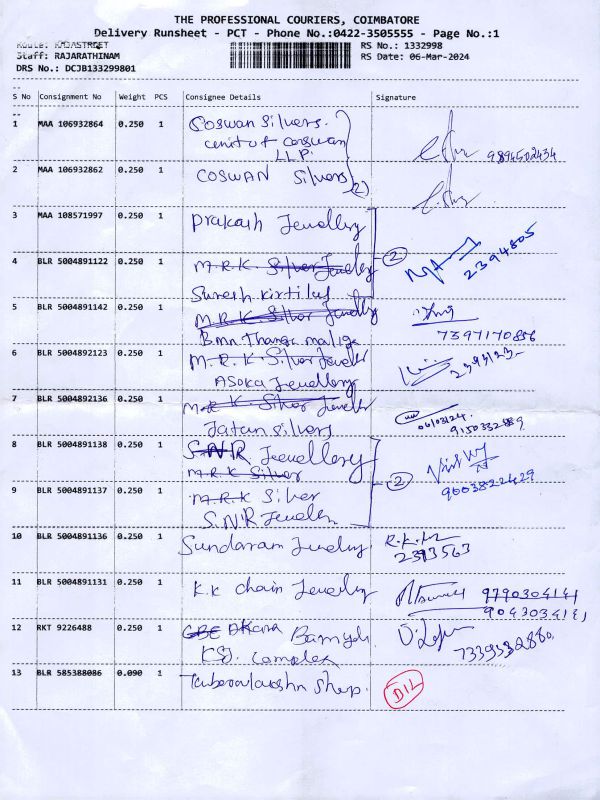 THE PROFESSIONAL COURIERS, COIMBATORE
Delivery Runsheet - PCT - Phone No.:0422-3505555 - Page No.:1
Route: RAJASTREET RS No.: 1332998
Staff: RAJARATHINAM RS Date: 06-Mar-2024
DRS No.: DCJB133299801
S No Consignment No Weight PCS Consignee Details Signature
1 MAA 106932864 0.250 1 Coswan Silvers.
unit of coswan
LLP.
9894502434
2 MAA 106932862 0.250 1 COSWAN Silvers (2)
3 MAA 108571997 0.250 1 Prakash Jewellery
2394805
4 BLR 5004891122 0.250 1 M.R.K. Silver Jewellery (2)
Suresh Kirtilal
5 BLR 5004891142 0.250 1 M.R.K. Silver Jewellery
7397170856
Bmn Thanga maliga
6 BLR 5004892123 0.250 1 M.R.K. Silver Jeweller
ASOKA Jewellery
7 BLR 5004892136 0.250 1 K Silver Jeweller
06/03/24.
Jatan Silvers 9150332889
8 BLR 5004891138 0.250 1 S.N.R Jewellery
M.R.K Silver (2)
9 BLR 5004891137 0.250 1 M.R.K Silver 9003822429
S.N.R Jewellers
10 BLR 5004891136 0.250 1 Sundaram Jewelry
2393563
11 BLR 5004891131 0.250 1 K.K chain Jewelry 9790304141
9043034141
12 RKT 9226488 0.250 1
Complex 7339332880
13 BLR 585388086 0.090 1 Shop. DIL